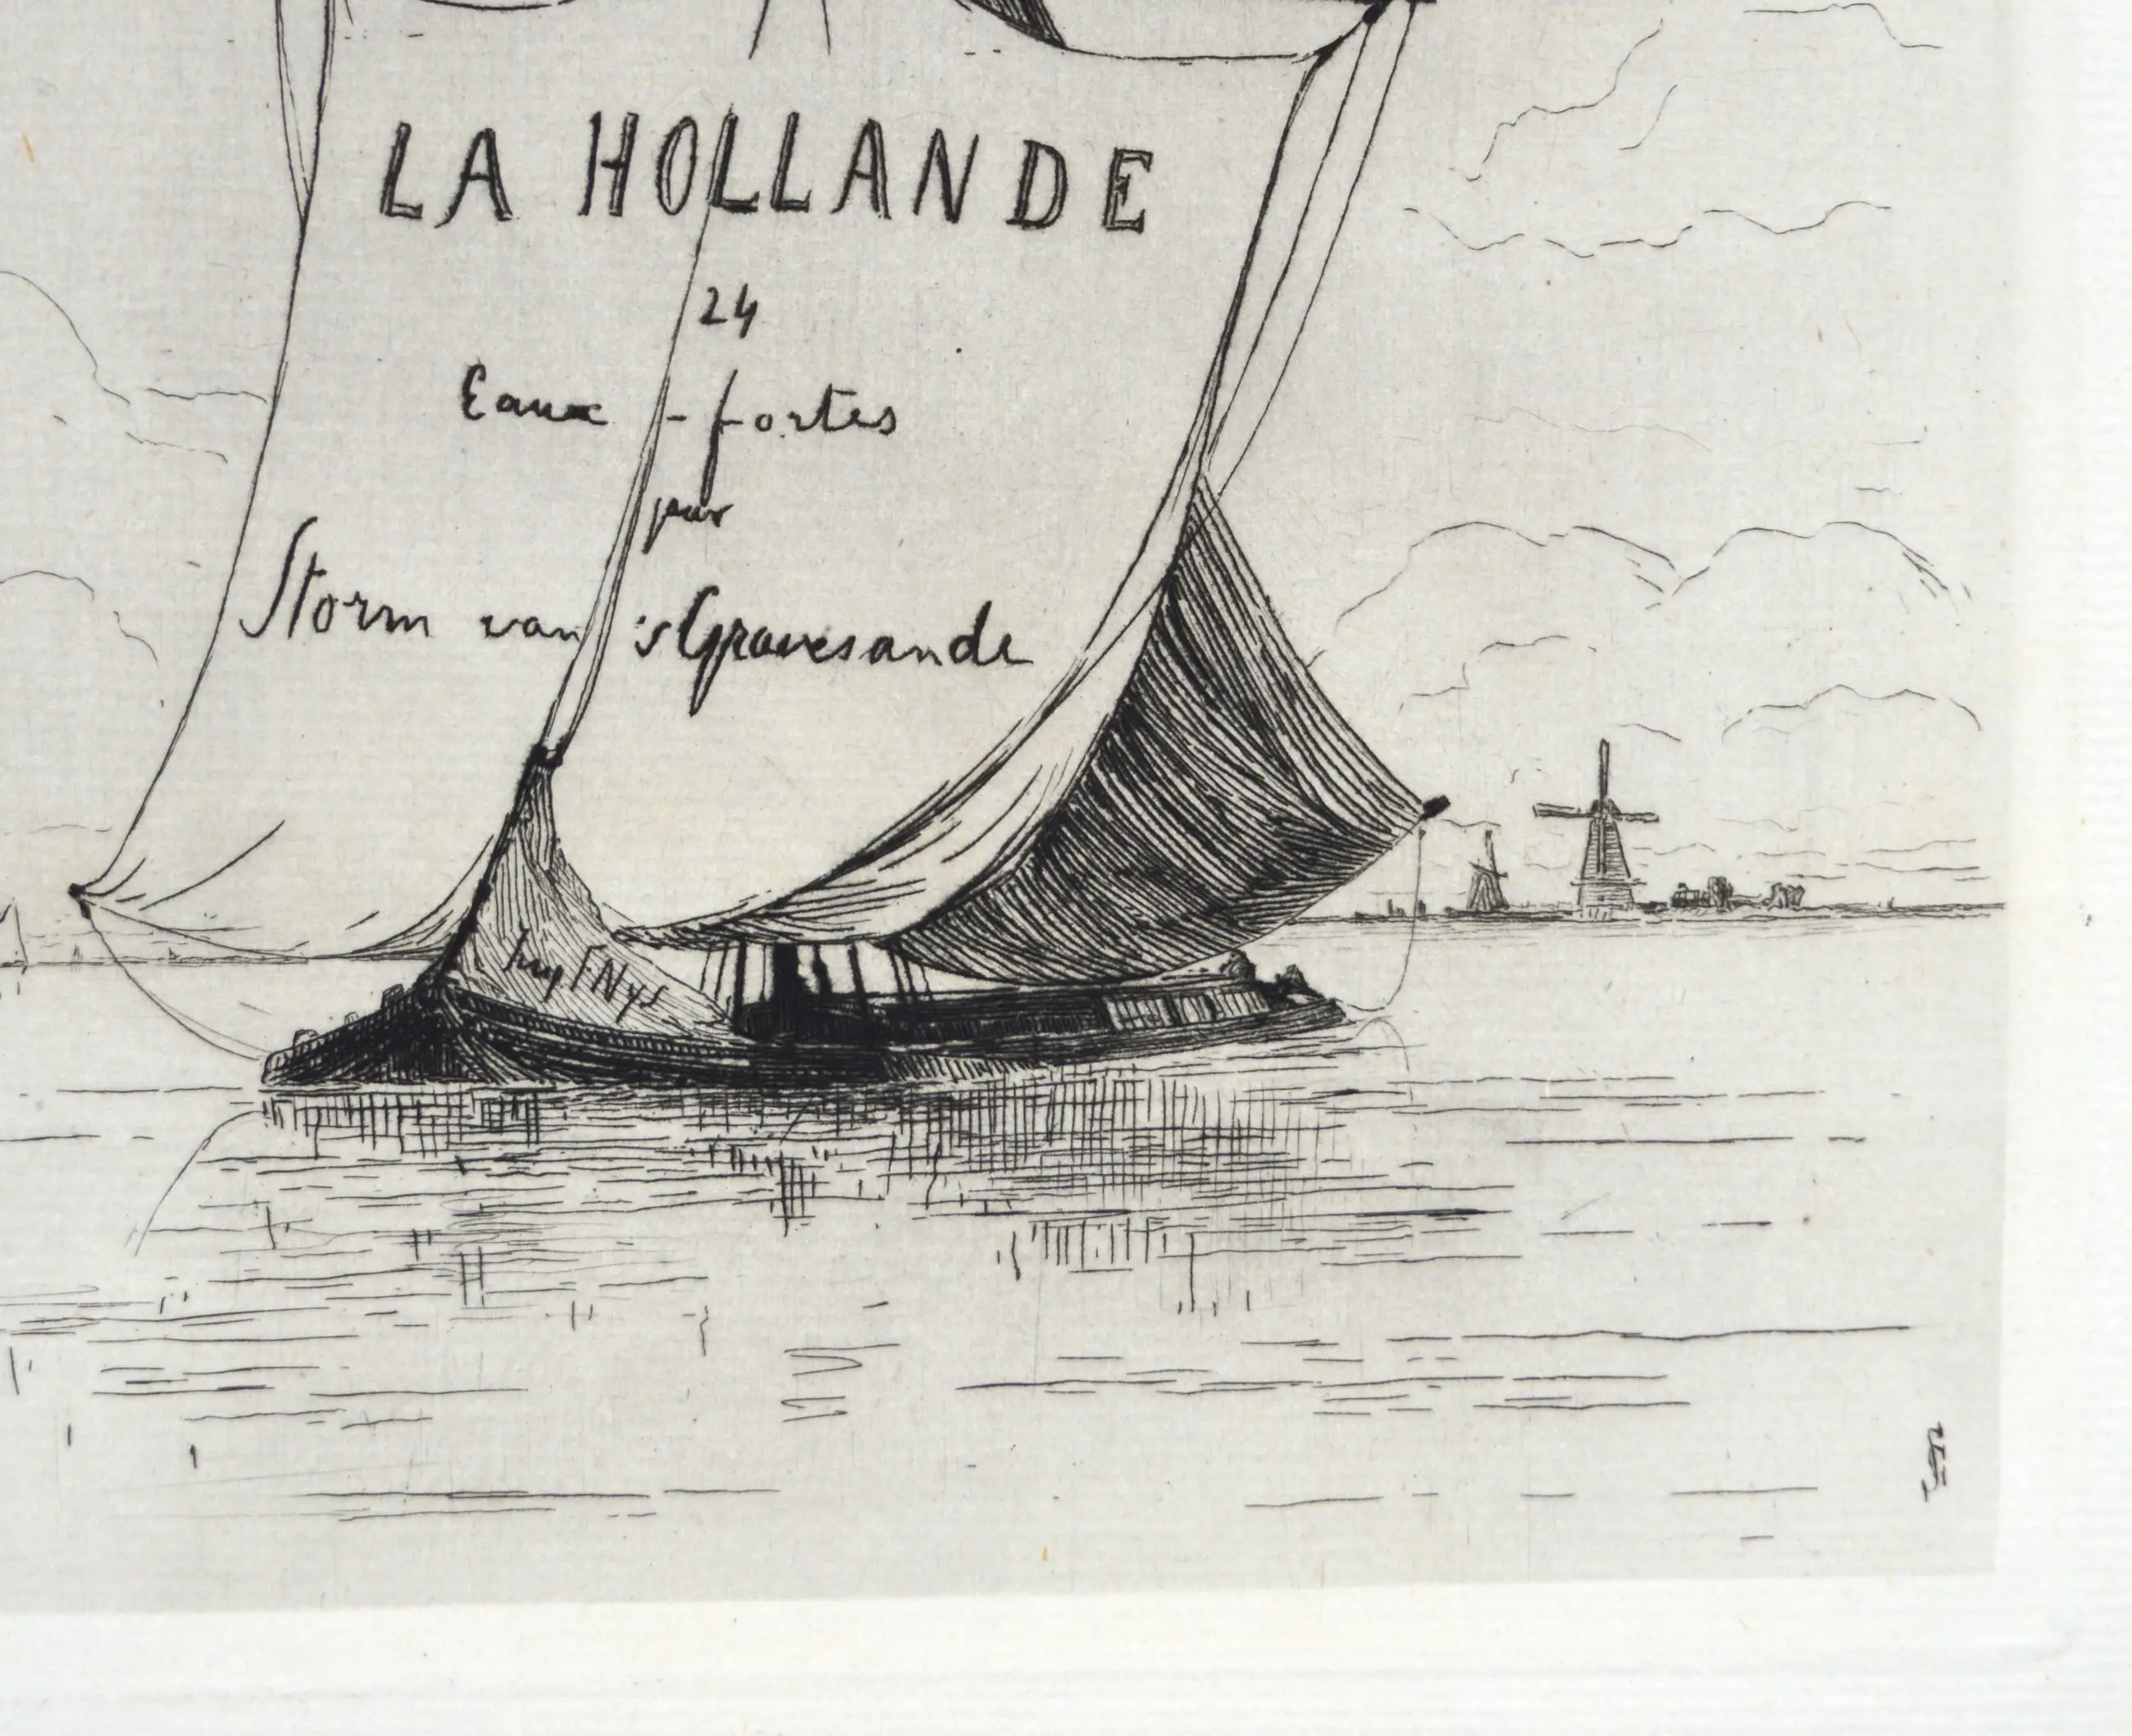 LA HOLLANDE
24
Eaux-fortes
par
Storm van 'sGravesande